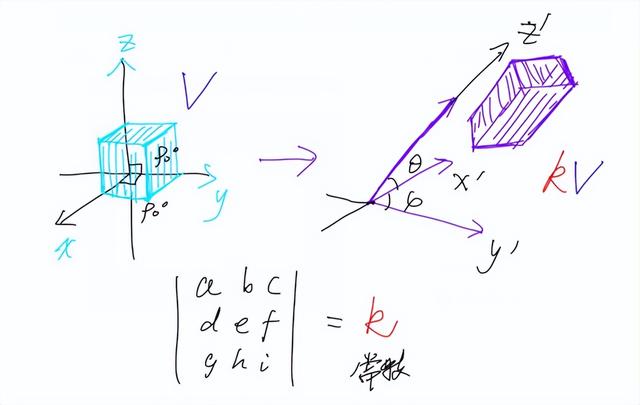 z
V
90°
90°
x
y
z'
θ
x'
φ
y'
kV
a b c
d e f
g h i
= k
常数